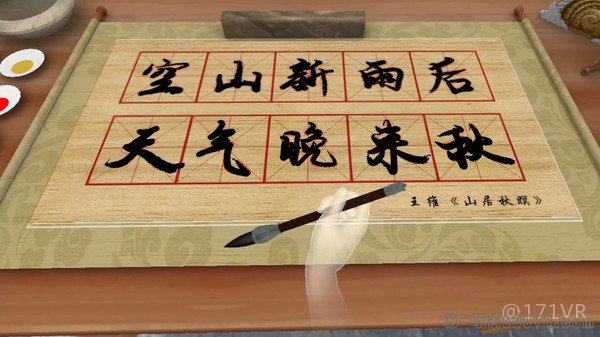 空山新雨后
天气晚来秋
王维《山居秋暝》
@171VR